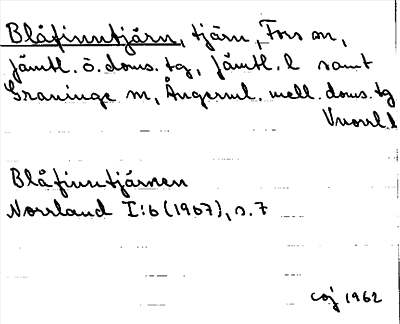 Blåfinntjärn, tjärn, Fors sn,
Jämtl. ö. doms. tg, Jämtl. l samt
Graninge sn, Ångerml. mell. doms. tg
Vnorrl. l
Blåfinntjärnen
Norrland I:6 (1967), s. 7
coj 1962